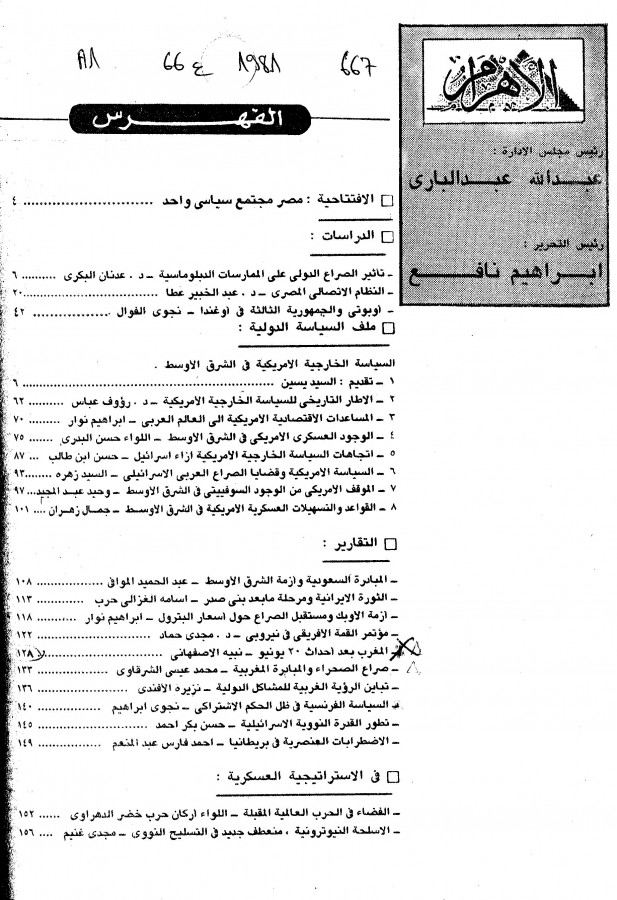 A1 66 ع 1981 667
الأهرام
رئيس مجلس الإدارة :
عبدالله عبدالبارى
رئيس التحرير :
ابراهيم نافع
الفهرس
□ الافتتاحية : مصر مجتمع سياسى واحد .......................... ٤
□ الدراسات :
ـ تأثير الصراع الدولى على الممارسات الدبلوماسية ـ د . عدنان البكرى .......... ٦
ـ النظام الاتصالى المصرى ـ د . عبد الخبير عطا ........................... ٢٠
ـ أوبوتى والجمهورية الثالثة فى أوغندا ـ نجوى الفوال .................... ٤٢
□ ملف السياسة الدولية :
السياسة الخارجية الامريكية فى الشرق الأوسط .
١ ـ تقديم : السيد يسين ................................................ ٦
٢ ـ الاطار التاريخى للسياسة الخارجية الامريكية ـ د . رؤوف عباس .......... ٦٢
٣ ـ المساعدات الاقتصادية الامريكية الى العالم العربى ـ ابراهيم نوار ......... ٧٠
٤ ـ الوجود العسكرى الامريكى فى الشرق الأوسط ـ اللواء حسن البدرى ....... ٧٥
٥ ـ اتجاهات السياسة الخارجية الامريكية ازاء اسرائيل ـ حسن ابن طالب .... ٨٧
٦ ـ السياسة الامريكية وقضايا الصراع العربى الاسرائيلى ـ السيد زهره ........ ٩٣
٧ ـ الموقف الامريكى من الوجود السوفييتى فى الشرق الأوسط ـ وحيد عبد المجيد... ٩٧
٨ ـ القواعد والتسهيلات العسكرية الامريكية فى الشرق الأوسط ـ جمال زهران .... ١٠١
□ التقارير :
ـ المبادرة السعودية وأزمة الشرق الأوسط ـ عبد الحميد الموافى ................... ١٠٨
ـ الثورة الايرانية ومرحلة مابعد بنى صدر ـ اسامه الغزالى حرب ............. ١١٣
ـ أزمة الأوبك ومستقبل الصراع حول أسعار البترول ـ ابراهيم نوار ........... ١١٨
ـ مؤتمر القمة الأفريقى فى نيروبى ـ د . مجدى حماد ........................ ١٢٢
ـ المغرب بعد أحداث ٢٠ يونيو ـ نبيه الاصفهانى .......................... ١٢٨
ـ صراع الصحراء والمبادرة المغربية ـ محمد عيسى الشرقاوى ................ ١٣٣
ـ تباين الرؤية الغربية للمشاكل الدولية ـ نزيره الأفندى ..................... ١٣٦
ـ السياسة الفرنسية فى ظل الحكم الاشتراكى ـ نجوى ابراهيم ................ ١٤٠
ـ تطور القدرة النووية الاسرائيلية ـ حسن بكر احمد ........................ ١٤٥
ـ الاضطرابات العنصرية فى بريطانيا ـ احمد فارس عبد المنعم ................... ١٤٩
□ فى الاستراتيجية العسكرية :
ـ الفضاء فى الحرب العالمية المقبلة ـ اللواء أركان حرب خضر الدهراوى ...... ١٥٢
ـ الاسلحة النيوترونية ، منعطف جديد فى التسليح النووى ـ مجدى غنيم .... ١٥٦